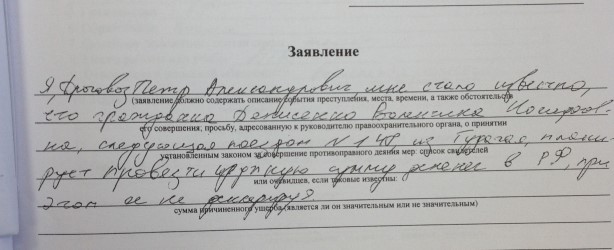 Заявление
Я, Дроговоз Петр Александрович, мне стало известно,
(заявление должно содержать описание события преступления, места, времени, а также обстоятельств
что гражданка Денисенко Валентина
его совершения; просьбу, адресованную к руководителю правоохранительного органа, о принятии
на, следующая поездом N из плани-
установленным законом за совершение противоправного деяния мер: список свидетелей
рует провезти крупную сумму денег в РФ, при
или очевидцев, если таковые известны:
этом ее не декларируя.
сумма причиненного ущерба (является ли он значительным или не значительным)